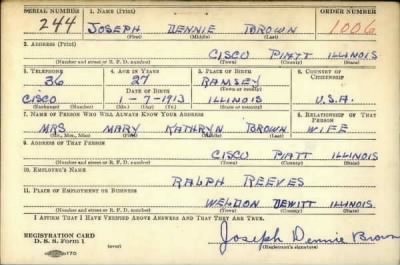 SERIAL NUMBER 1. NAME (Print) ORDER NUMBER
244 JOSEPH DENNIE BROWN 1006
(First) (Middle) (Last)
2. ADDRESS (Print)
CISCO PIATT ILLINOIS
(Number and street or R. F. D. number) (Town) (County) (State)
3. TELEPHONE 4. AGE IN YEARS 5. PLACE OF BIRTH 6. COUNTRY OF CITIZENSHIP
36 27 RAMSEY
DATE OF BIRTH (Town or county)
CISCO 1-7-1913 ILLINOIS U.S.A.
(Exchange) (Number) (Mo.) (Day) (Yr.) (State or country)
7. NAME OF PERSON WHO WILL ALWAYS KNOW YOUR ADDRESS 8. RELATIONSHIP OF THAT PERSON
MRS MARY KATHRYN BROWN WIFE
(Mr., Mrs., Miss) (First) (Middle) (Last)
9. ADDRESS OF THAT PERSON
CISCO PIATT ILLINOIS
(Number and street or R. F. D. number) (Town) (County) (State)
10. EMPLOYER'S NAME
RALPH REEVES
11. PLACE OF EMPLOYMENT OR BUSINESS
WELDON DEWITT ILLINOIS
(Number and street or R. F. D. number) (Town) (County) (State)
I AFFIRM THAT I HAVE VERIFIED ABOVE ANSWERS AND THAT THEY ARE TRUE.
REGISTRATION CARD
D. S. S. Form 1 (over) Joseph Dennie Brown
(Registrant's signature)